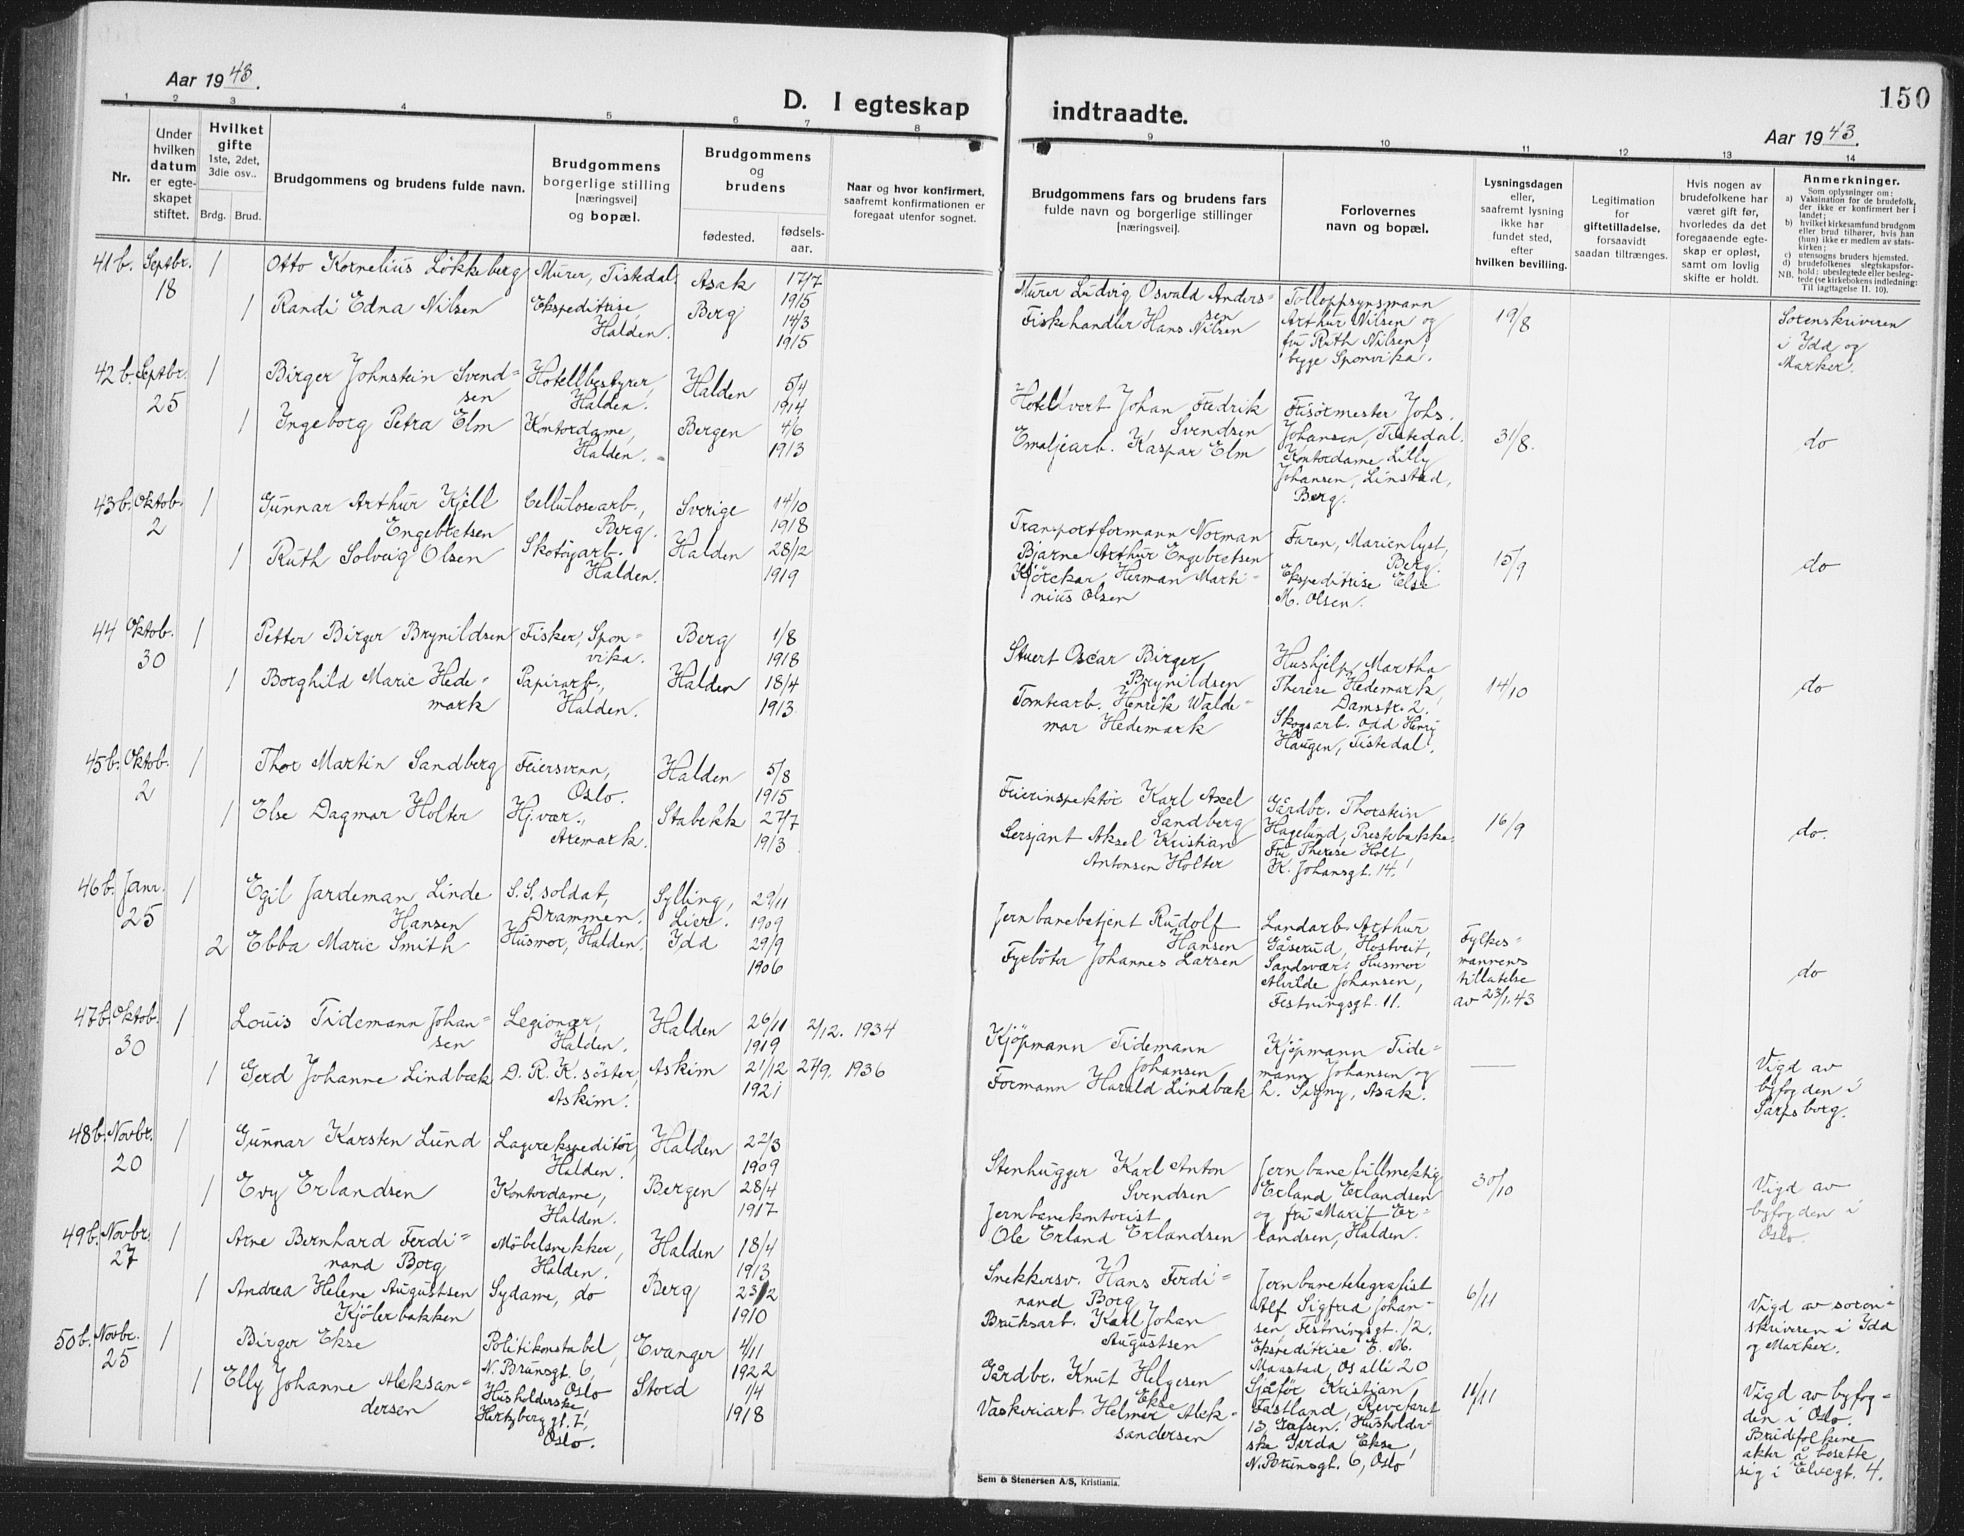 Aar 1943.
D. I egteskap
1 2 3 4 5 6 7 8
Nr.
Under
hvilken
datum
er egte-
skapet
stiftet.
Hvilket
gifte
1ste, 2det,
3die osv..
Brdg. Brud.
Brudgommens og brudens fulde navn.
Brudgommens
borgerlige stilling
[næringsvei]
og bopæl.
Brudgommens
og
brudens
fødested.
fødsels-
aar.
Naar og hvor konfirmert,
saafremt konfirmationen er
foregaat utenfor sognet.
41 b. Septbr. 1 Otto Kornelius Løkkeberg Murer, Tistedal. Asak 17/7
18 1915
1 Randi Edna Nilsen Ekspeditrise, Berg 14/3
Halden. 1915
42 b. Septbr. 1 Birger Johnstein Svend= Hotellbestyrer, Halden 5/4
25 sen Halden. 1914
1 Ingeborg Petra Elm Kontordame, Bergen 4/6
Halden. 1913
43 b. Oktob. 1 Gunnar Arthur Kjell Cellulosearb., Sverige 14/10
2 Engebretsen Berg. 1918
1 Ruth Solveig Olsen Skotøyarb. Halden 28/12
Halden. 1919
44 Oktob. 1 Petter Birger Brynildsen Fisker, Spon- Berg 1/8
30 vika. 1918
1 Borghild Marie Hede- Papirarb., Halden 18/4
mark Halden. 1913
45 b. Oktob. 1 Thor Martin Sandberg Feiersvenn, Halden 5/8
2 Oslo. 1915
1 Else Dagmar Holter Hj.vær., Stabekk 27/7
Aremark. 1913
46 b. Janr. 1 Egil Jardeman Linde S.S. soldat, Sylling, 29/11
25 Hansen Drammen. Lier. 1909
2 Ebba Marie Smith Husmor, Halden. Idd 29/9
1906
47 b. Oktob. 1 Louis Tidemann Johan- Legionær, Halden 26/11 2/12. 1934
30 sen Halden. 1919
1 Gerd Johanne Lindbæk D. R. K. søster, Askim 21/12 27/9. 1936
Askim. 1921
48 b. Novbr. 1 Gunnar Karsten Lund Lagerekspeditør, Halden 22/3
20 Halden. 1909
1 Evy Erlandsen Kontordame, Bergen 28/4
Halden. 1917
49 b. Novbr. 1 Arne Bernhard Ferdi- Møbelsnekker, Halden 18/4
27 nand Borg Halden. 1913
1 Andrea Helene Augustsen Sydame, do Berg 23/12
Kjølerbakken 1910
50 b. Novbr. 1 Birger Ekse Politikonstabel, Evanger 4/11
25 N. Brunsgt. 6, Oslo 1922
1 Elly Johanne Aleksan- Husholderske, Stord 1/4
dersen Hertzberggt. 7, 1918
Oslo.
indtraadte.
150
Aar 1943.
9 10 11 12 13 14
Brudgommens fars og brudens fars
fulde navn og borgerlige stillinger
[næringsvei].
Forlovernes
navn og bopæl.
Lysningsdagen
eller,
saafremt lysning
ikke har
fundet sted,
efter
hvilken bevilling.
Legitimation
for
giftetilladelse,
forsaavidt
saadan tiltrænges.
Hvis nogen av
brudefolkene har
været gift før,
hvorledes da det
foregaaende egte-
skap er opløst,
samt om lovlig
skifte er holdt.
Anmerkninger.
Som oplysninger om:
a) Vaksination for de brudefolk,
der ikke er konfirmert her i
landet;
b) hvilket kirkesamfund brudgom
eller brud tilhører, hvis han
(hun) ikke er medlem av stats-
kirken;
c) utensogns bruders hjemsted.
d) brudefolkenes slegtskapsfor-
hold: ubeslegtede eller besleg-
tede (se kirkebokens indledning:
NB. Til iagttagelse II. 10).
Murer Ludvig Osvald Anders- Tolloppsynsmann
sen Arthur Nilsen og 19/8 Sorenskriveren
Fiskehandler Hans Nilsen fru Ruth Nilsen, i Idd og
begge Sponvika. Marker.
Hotellvert Johan Fredrik Frisørmester Johs.
Svendsen Johansen, Tistedal. 31/8. do
Emaljearb. Kaspar Elm Kontordame Lilly
Johansen, Linstad,
Berg.
Transportformann Norman Faren, Marienlyst,
Bjarne Arthur Engebretsen Berg. 15/9 do
Kjørekar Herman Marti- Ekspeditrise Else
nius Olsen M. Olsen.
Stuert Oscar Birger Hushjelp Martha
Brynildsen Therese Hedemark, 14/10 do
Tomtearb. Henrik Walde- Damstr. 2.
mar Hedemark Skogsarb. Odd Henry
Haugen, Tistedal.
Feierinspektør Karl Axel Gårdbr. Thorstein
Sandberg Hagelund, Prestebakke. 16/9 do.
Sersjant Aksel Kristian Fru Therese Holt,
Antonsen Holter K. Johansgt. 14.
Jernbanebetjent Rudolf Landarb. Arthur Fylkes-
Hansen Gåserud, Hostveit, mannens
Fyrbøter Johannes Larsen Sandsvær. Husmor tillatelse do
Alvilde Johansen, av 23/1.43
Festningsgt. 11.
Kjøpmann Tidemann Kjøpmann Tide- Vigd av
Johansen mann Johansen og — byfogden i
Formann Harald Lindbæk h. Signy, Asak. Sarpsborg.
Stenhugger Karl Anton Jernbanefullmektig
Svendsen Erland Erlandsen 30/10 Vigd av
Jernbanekontorist og fru Marit Er- byfogden i
Ole Erland Erlandsen landsen, Halden. Oslo.
Snekkersv. Hans Ferdi- Jernbanetelegrafist
nand Borg Alf Sigfred Johan- 6/11 Vigd av soren-
Bruksarb. Karl Johan sen, Festningsgt. 12. skriveren i Idd
Augustsen Ekspeditrise E. M. og Marker.
Maastad, Os allé 20
Gårdbr. Knut Helgesen Sjåfør Kristian 11/11 Vigd av byfog-
Ekse Fastland, Revefaret den i Oslo.
Vaskeriarb. Helmer Alek- 13, Grefsen. Husholder- Brudefolkene
sandersen ske Gerda Ekse, akter å bosette
N. Brunsgt. 6, Oslo sig i Elvegt. 4.
Sem & Stenersen A/S, Kristiania.